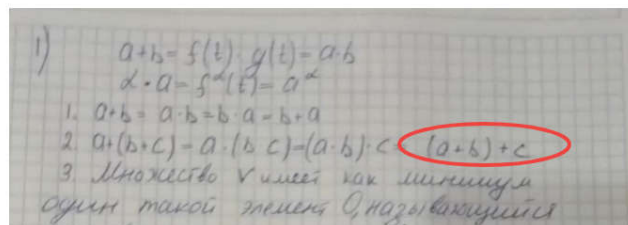 1)
a+b = f(t) · g(t) = a·b
α · a = f^α(t) = a^α
1. a+b = a·b = b·a = b+a
2. a+(b+c) = a·(b c) = (a·b)·c = (a+b)+c
3. Множество V имеет как минимум
один такой элемент 0, называющийся